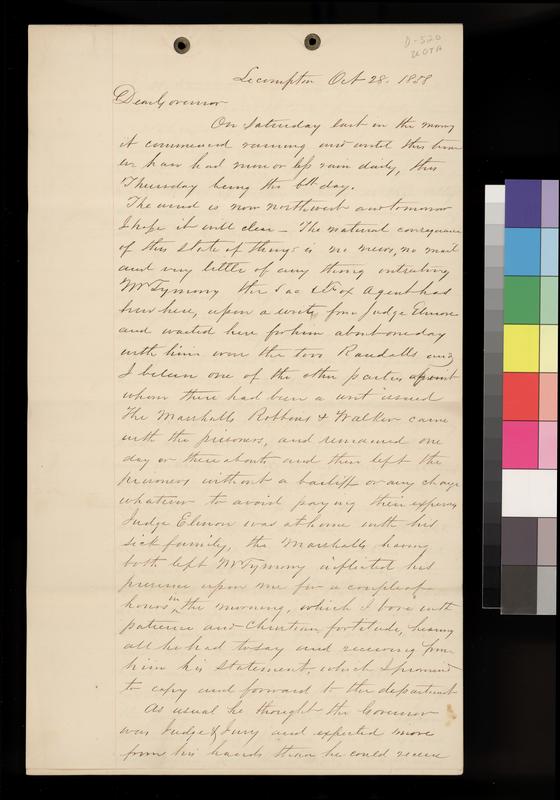 D-520
Lecompton Oct 28. 1858
Dear Governor
On Saturday last in the morng
it commenced raining and until this time
we have had more or less rain daily, this
Thursday being the 6th day.
The wind is now northwest and tomorrow
I hope it will clear – The natural consequence
of this state of things is no news, no mail
and very little of any thing interesting
Mr Tymony the Sac & Fox Agent has
been here, upon a writ from Judge Elmore
and waited here for him about one day
with him were the two Randalls and
I believe one of the other parties against
whom there had been a writ issued
The Marshalls Robbins & Walker came
with the prisoners, and remained one
day or there abouts and then left the
prisoners without a bailiff or any charge
whatever to avoid paying their expenses
Judge Elmore was at home with his
sick family, the Marshalls having
both left Mr Tymony inflicted his
presence upon me for a couple of
hours in the morning, which I bore with
patience and Christian fortitude, hearing
all he had to say and receiving from
him his statement, which I promised
to copy and forward to the department
As usual he thought the Governor
was Judge & Jury and expected more
from his hands than he could receive